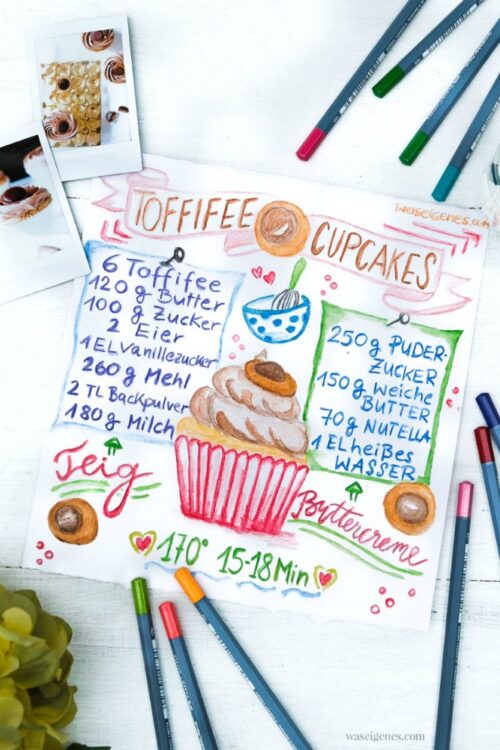 TOFFIFEE
CUPCAKES
waseigenes.com
6 Toffifee
120 g Butter
100 g Zucker
2 Eier
1 EL Vanillezucker
260 g Mehl
2 TL Backpulver
180 g Milch
Teig
250g PUDER-
ZUCKER
150g weiche
BUTTER
70g NUTELLA
1 EL heißes
WASSER
Buttercreme
170° 15-18 Min
waseigenes.com